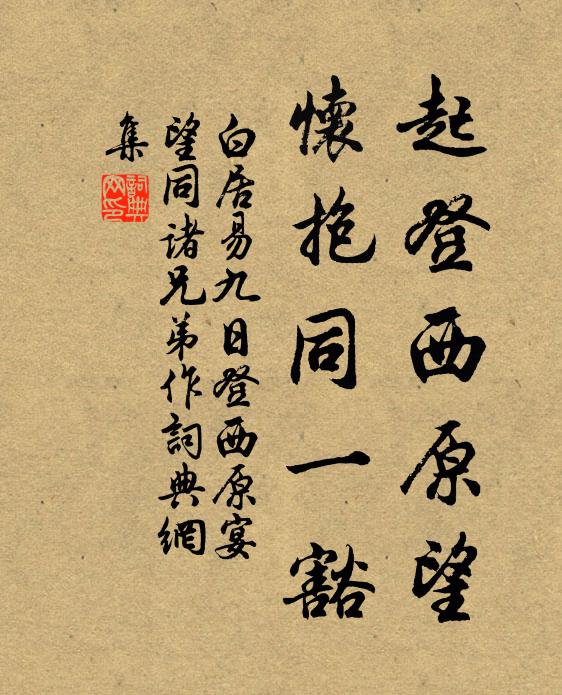 起登西原望
懷抱同一豁
白居易九日登西原宴
望同诸兄弟作詞典網
集
詞典网印